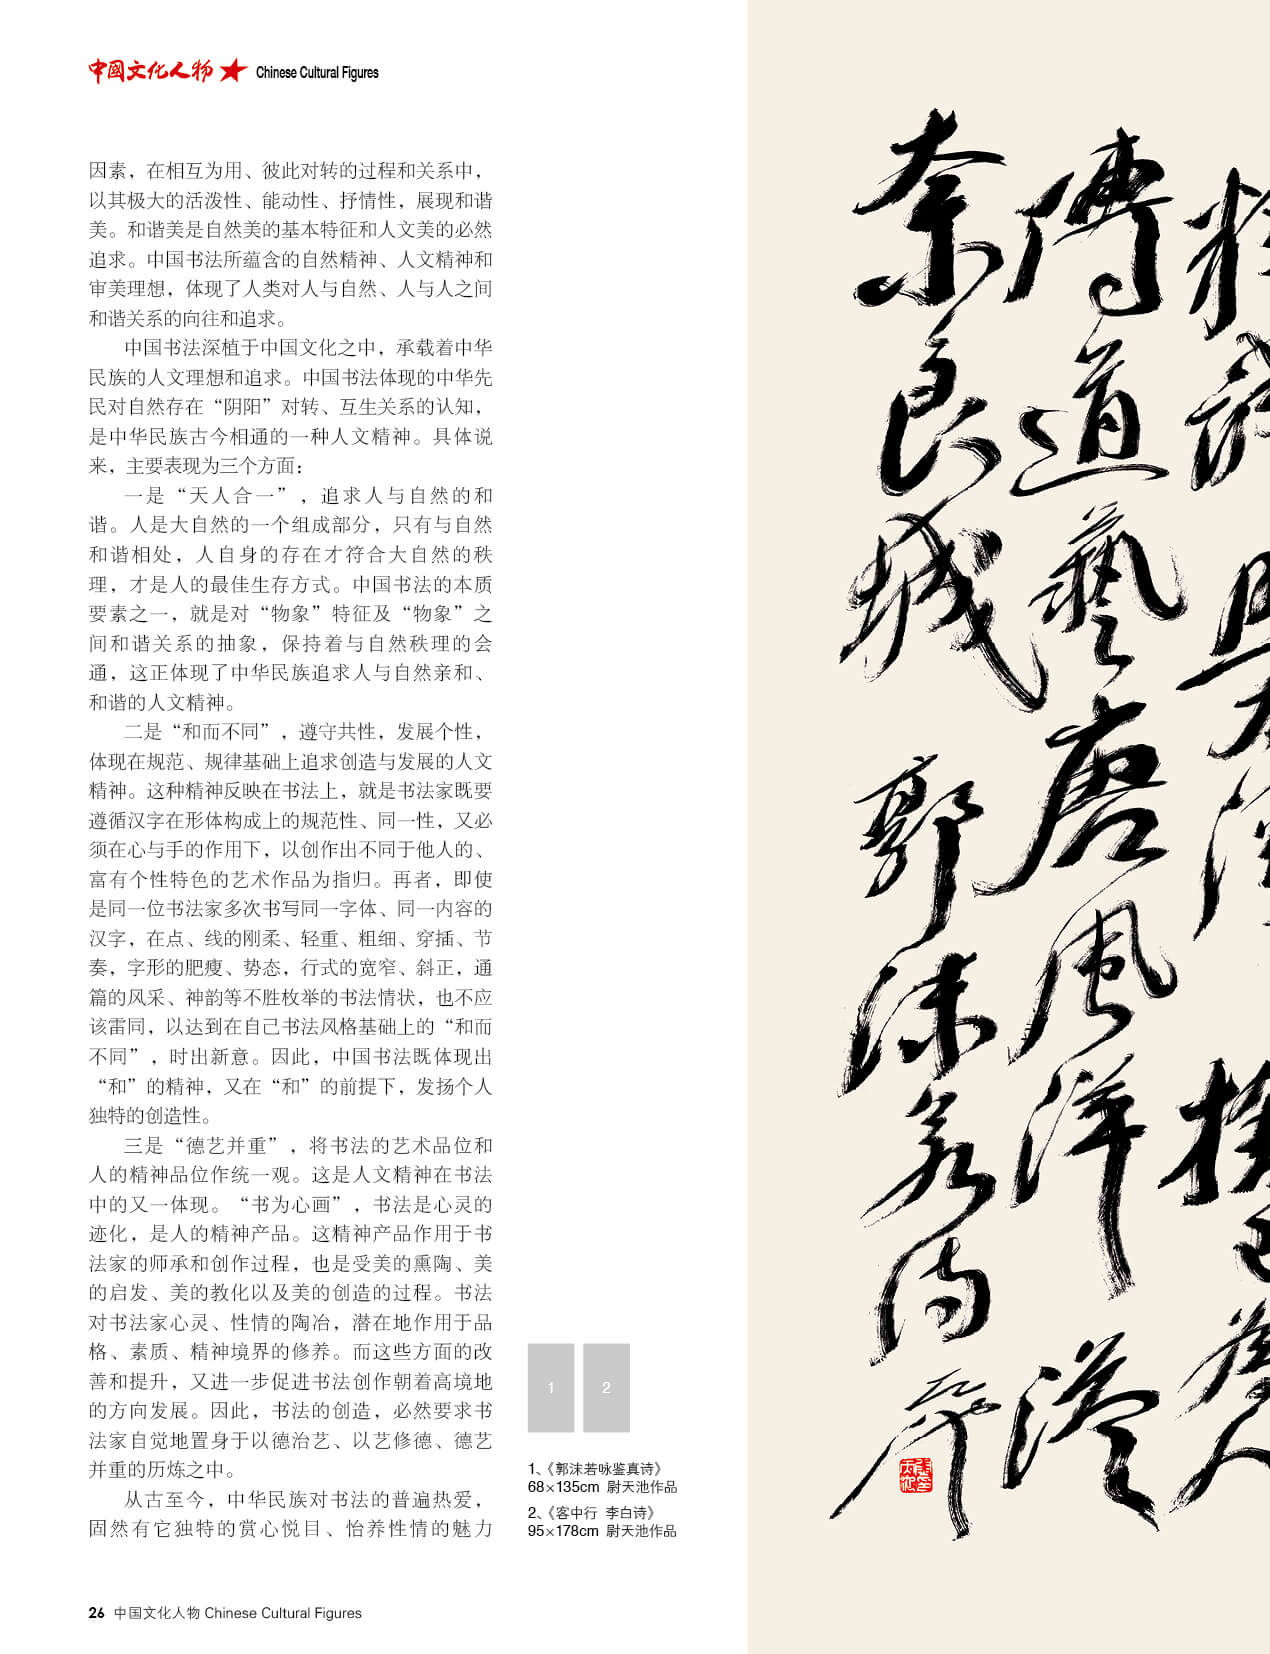 中國文化人物 Chinese Cultural Figures
因素，在相互为用、彼此对转的过程和关系中，
以其极大的活泼性、能动性、抒情性，展现和谐
美。和谐美是自然美的基本特征和人文美的必然
追求。中国书法所蕴含的自然精神、人文精神和
审美理想，体现了人类对人与自然、人与人之间
和谐关系的向往和追求。
中国书法深植于中国文化之中，承载着中华
民族的人文理想和追求。中国书法体现的中华先
民对自然存在“阴阳”对转、互生关系的认知，
是中华民族古今相通的一种人文精神。具体说
来，主要表现为三个方面：
一是“天人合一”，追求人与自然的和
谐。人是大自然的一个组成部分，只有与自然
和谐相处，人自身的存在才符合大自然的秩
理，才是人的最佳生存方式。中国书法的本质
要素之一，就是对“物象”特征及“物象”之
间和谐关系的抽象，保持着与自然秩理的会
通，这正体现了中华民族追求人与自然亲和、
和谐的人文精神。
二是“和而不同”，遵守共性，发展个性，
体现在规范、规律基础上追求创造与发展的人文
精神。这种精神反映在书法上，就是书法家既要
遵循汉字在形体构成上的规范性、同一性，又必
须在心与手的作用下，以创作出不同于他人的、
富有个性特色的艺术作品为指归。再者，即使
是同一位书法家多次书写同一字体、同一内容的
汉字，在点、线的刚柔、轻重、粗细、穿插、节
奏，字形的肥瘦、势态，行式的宽窄、斜正，通
篇的风采、神韵等不胜枚举的书法情状，也不应
该雷同，以达到在自己书法风格基础上的“和而
不同”，时出新意。因此，中国书法既体现出
“和”的精神，又在“和”的前提下，发扬个人
独特的创造性。
三是“德艺并重”，将书法的艺术品位和
人的精神品位作统一观。这是人文精神在书法
中的又一体现。“书为心画”，书法是心灵的
迹化，是人的精神产品。这精神产品作用于书
法家的师承和创作过程，也是受美的熏陶、美
的启发、美的教化以及美的创造的过程。书法
对书法家心灵、性情的陶冶，潜在地作用于品
格、素质、精神境界的修养。而这些方面的改
善和提升，又进一步促进书法创作朝着高境地
的方向发展。因此，书法的创造，必然要求书
法家自觉地置身于以德治艺、以艺修德、德艺
并重的历炼之中。
从古至今，中华民族对书法的普遍热爱，
固然有它独特的赏心悦目、怡养性情的魅力
1 2
1、《郭沫若咏鉴真诗》
68×135cm 尉天池作品
2、《客中行 李白诗》
95×178cm 尉天池作品
傳道藝唐風洋溢
奈良城 郭沫若诗
26 中国文化人物 Chinese Cultural Figures